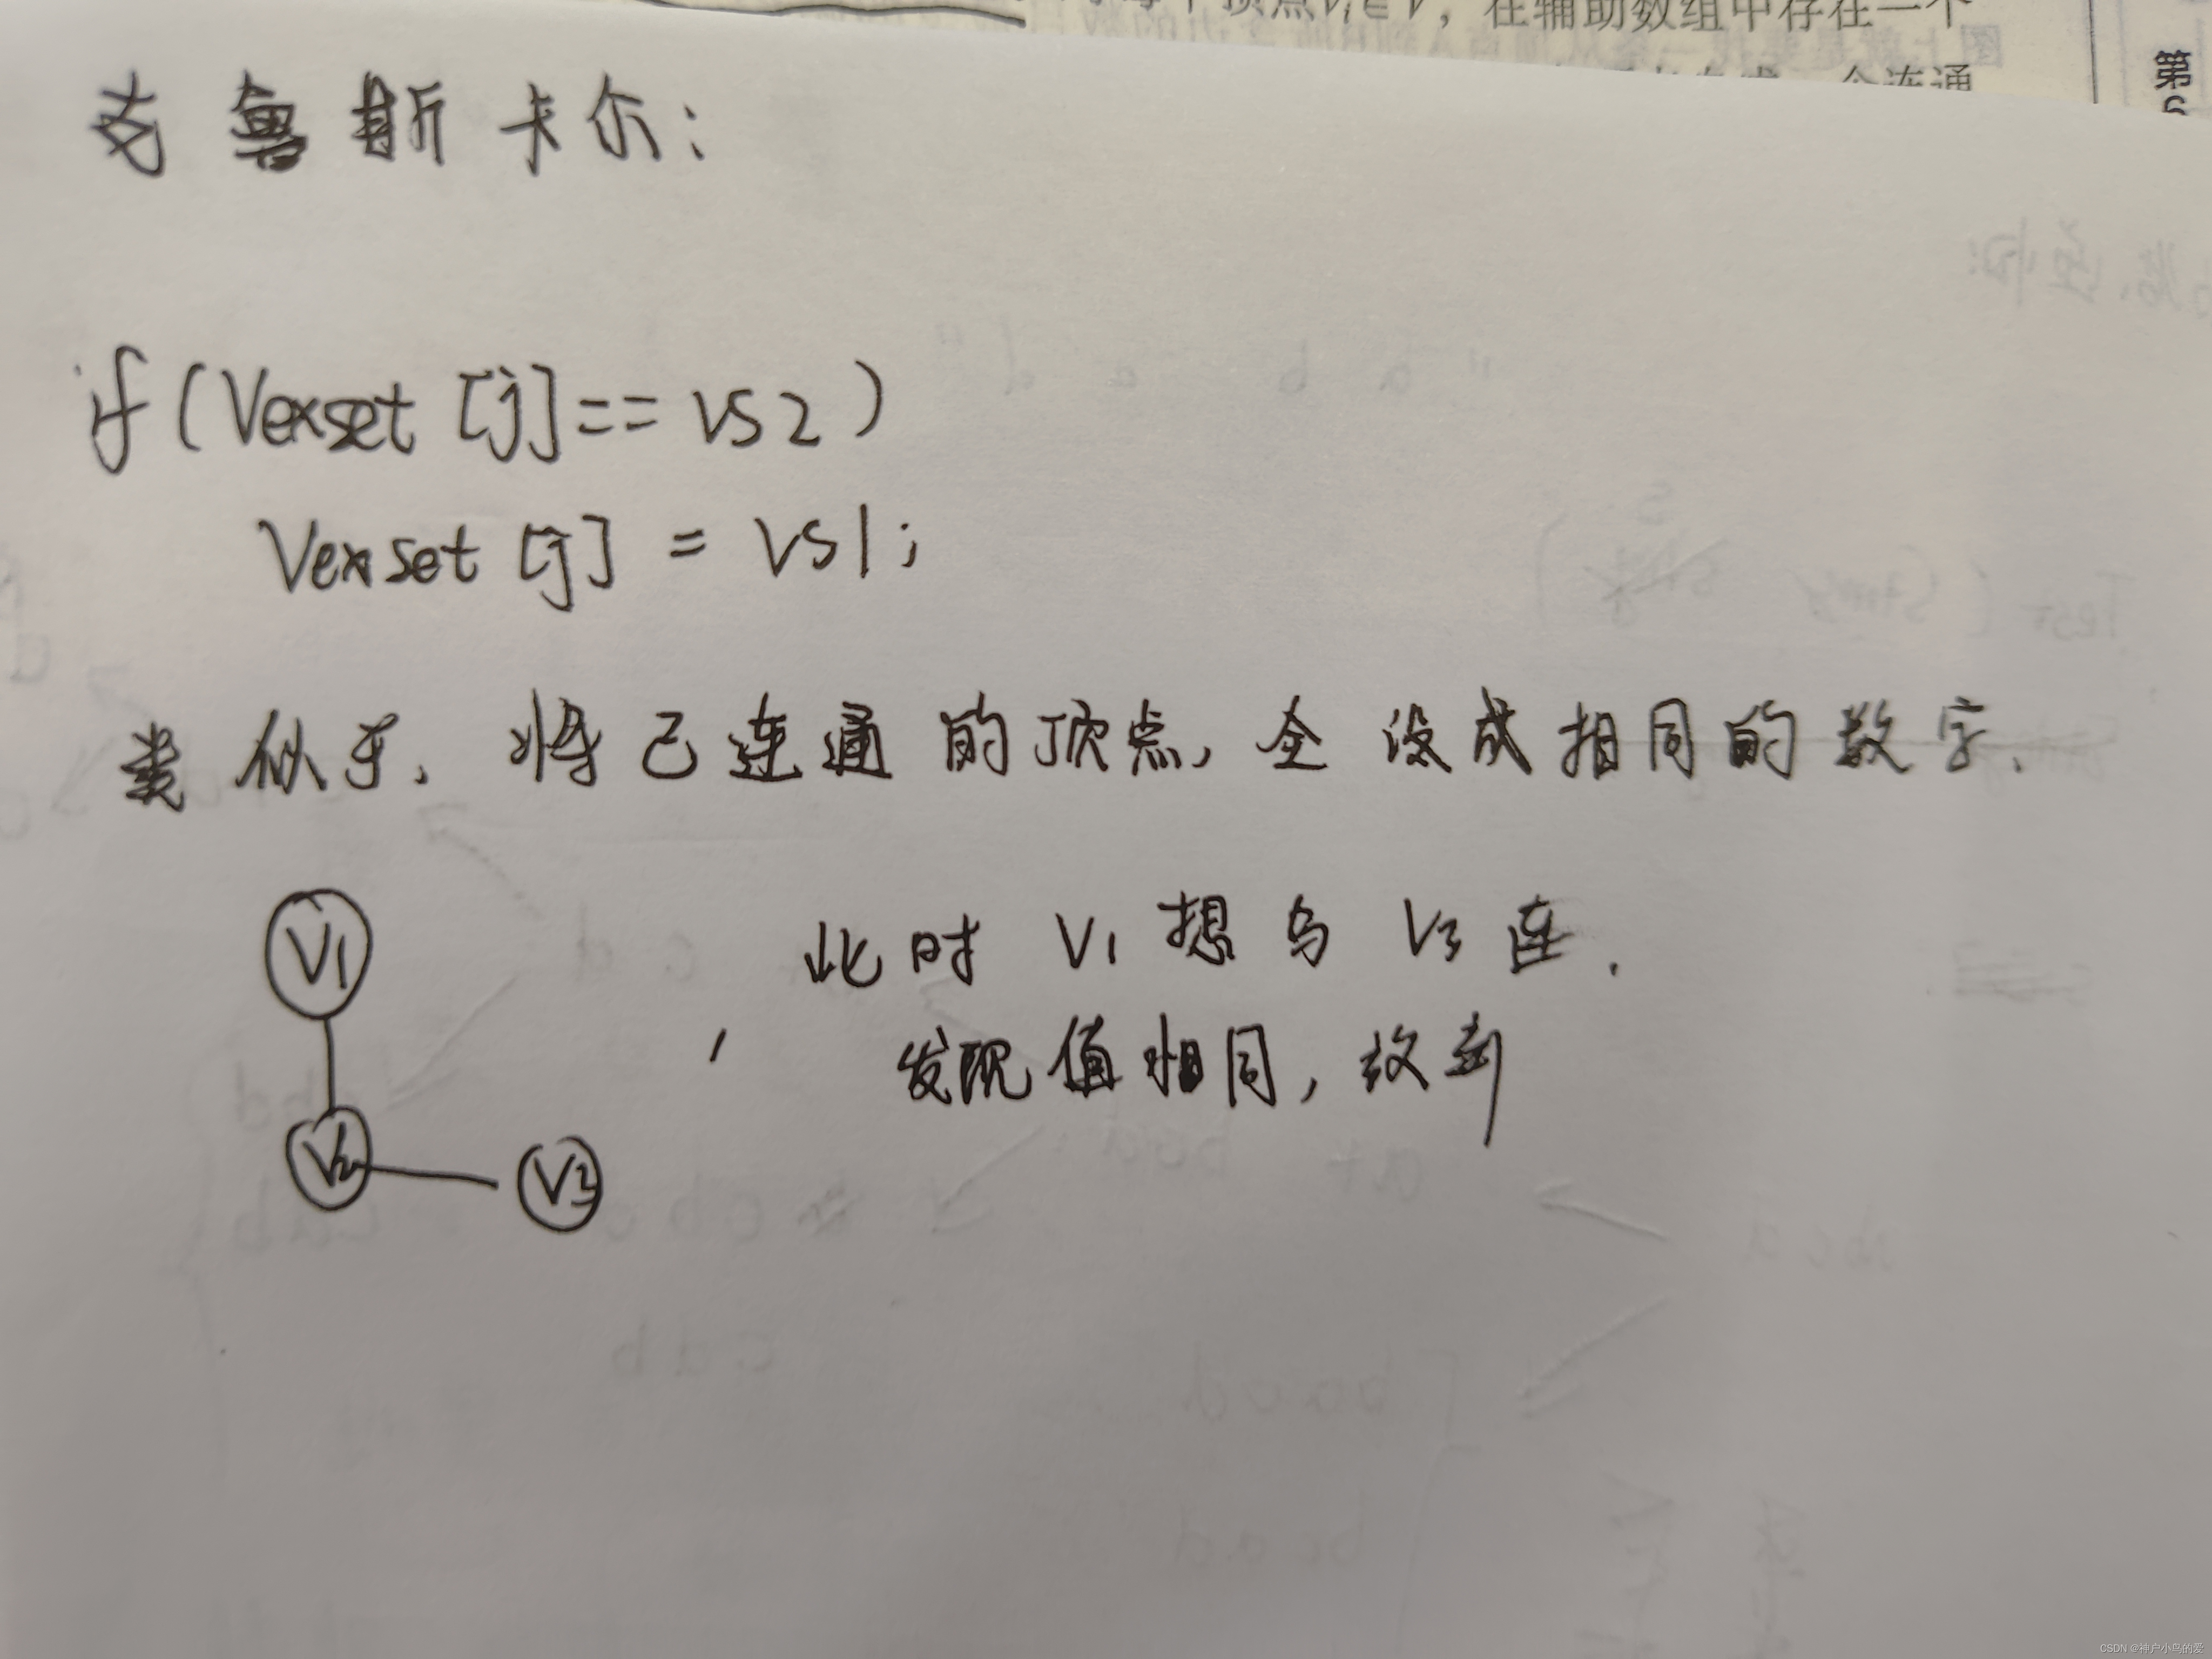 顶点Vi∈V，在辅助数组中存在一个
一个连通
第
6
克鲁斯卡尔：
if(Vexset [j]== vs2)
Vexset [j] = vs1;
类似于，将已连通的顶点，全设成相同的数字.
V1
V2
V3
此时 V1 想与 V3 连.
发现值相同，故断
CSDN @神户小鸟的爱